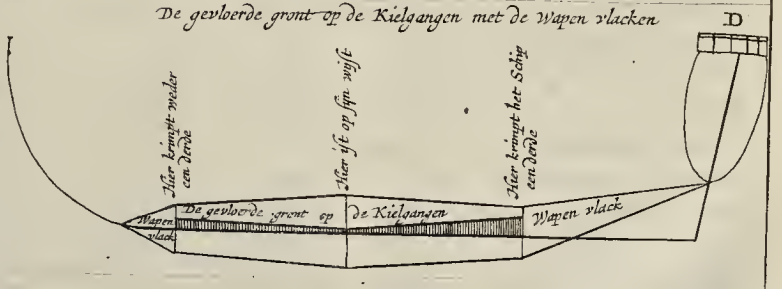 De gevloerde gront op de Kielgangen met de Wapen vlacken
D
Hier krimpt weder
een derde
Hier ist op sijn wijst
Hier krimpt het Schip
een derde
De gevloerde gront op de Kielgangen
Wapen
vlack
Wapen vlack